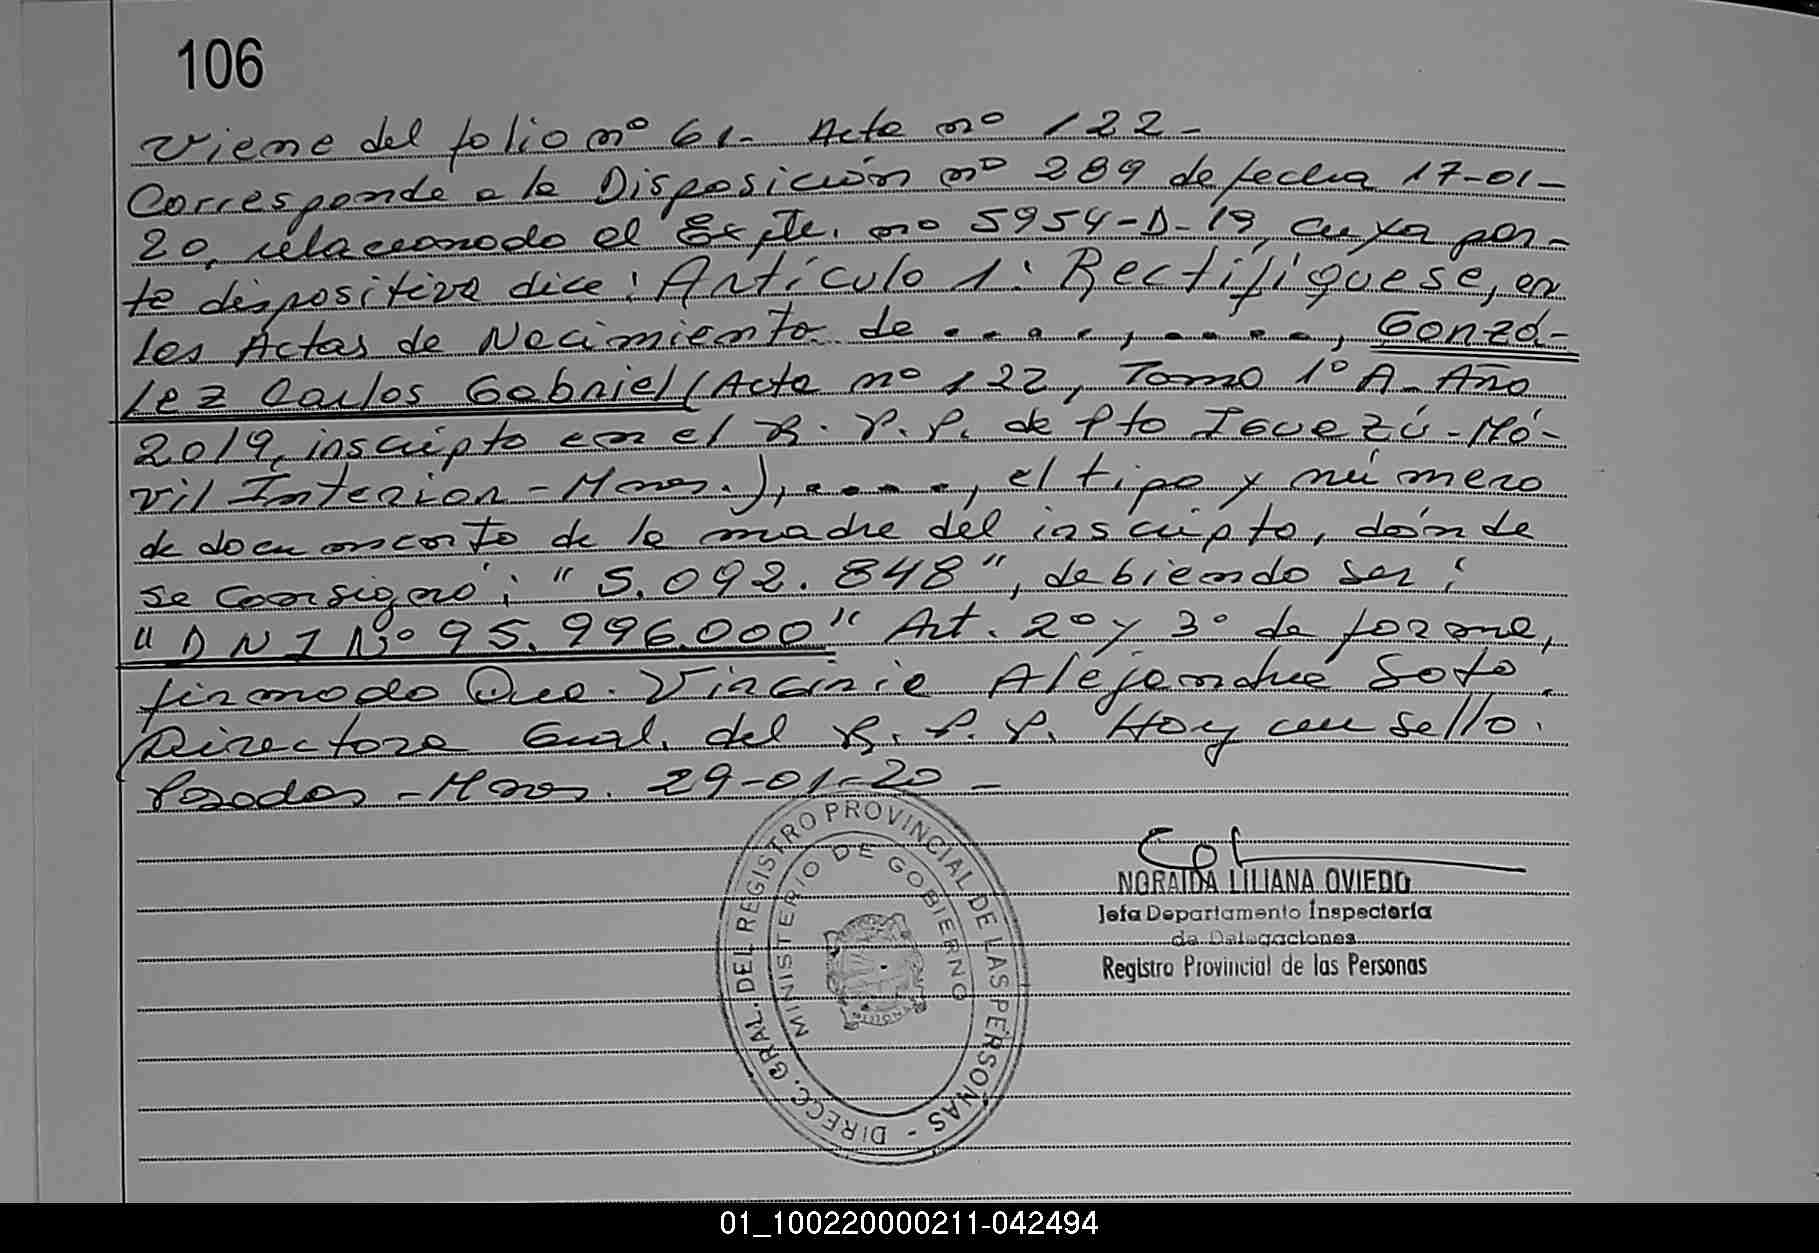 106
Viene del folio nº 61- Acta nº 122-
Corresponde a la Disposición nº 289 de fecha 17-01-
20, relacionado el Expte. nº 5954-D-19, cuya par-
te dispositiva dice: Artículo 1: Rectifíquese, en
las Actas de Nacimiento de . . . . , . . . . . , Gonzá-
lez Carlos Gabriel (Acta nº 122, Tomo 1º A- Año
2019, inscripto en el R. P. P. de Pto Iguazú-Mó-
vil Interior - Mnes.), . . . . . , el tipo y número
de documento de la madre del inscripto, dónde
se consignó: "5.092.848", debiendo ser:
"DNI Nº 95.996.000" Art. 2º y 3º de forma,
firmado Dra. Virginia Alejandra Soto.
Directora Gral. del R. P. P. Hay un sello.
Posadas - Mnes. 29-01-20 -
DIRECC. GRAL. DEL REGISTRO PROVINCIAL DE LAS PERSONAS -
MINISTERIO DE GOBIERNO
NORAIDA LILIANA OVIEDO
Jefa Departamento Inspectoría
de Delegaciones
Registro Provincial de las Personas
01_100220000211-042494